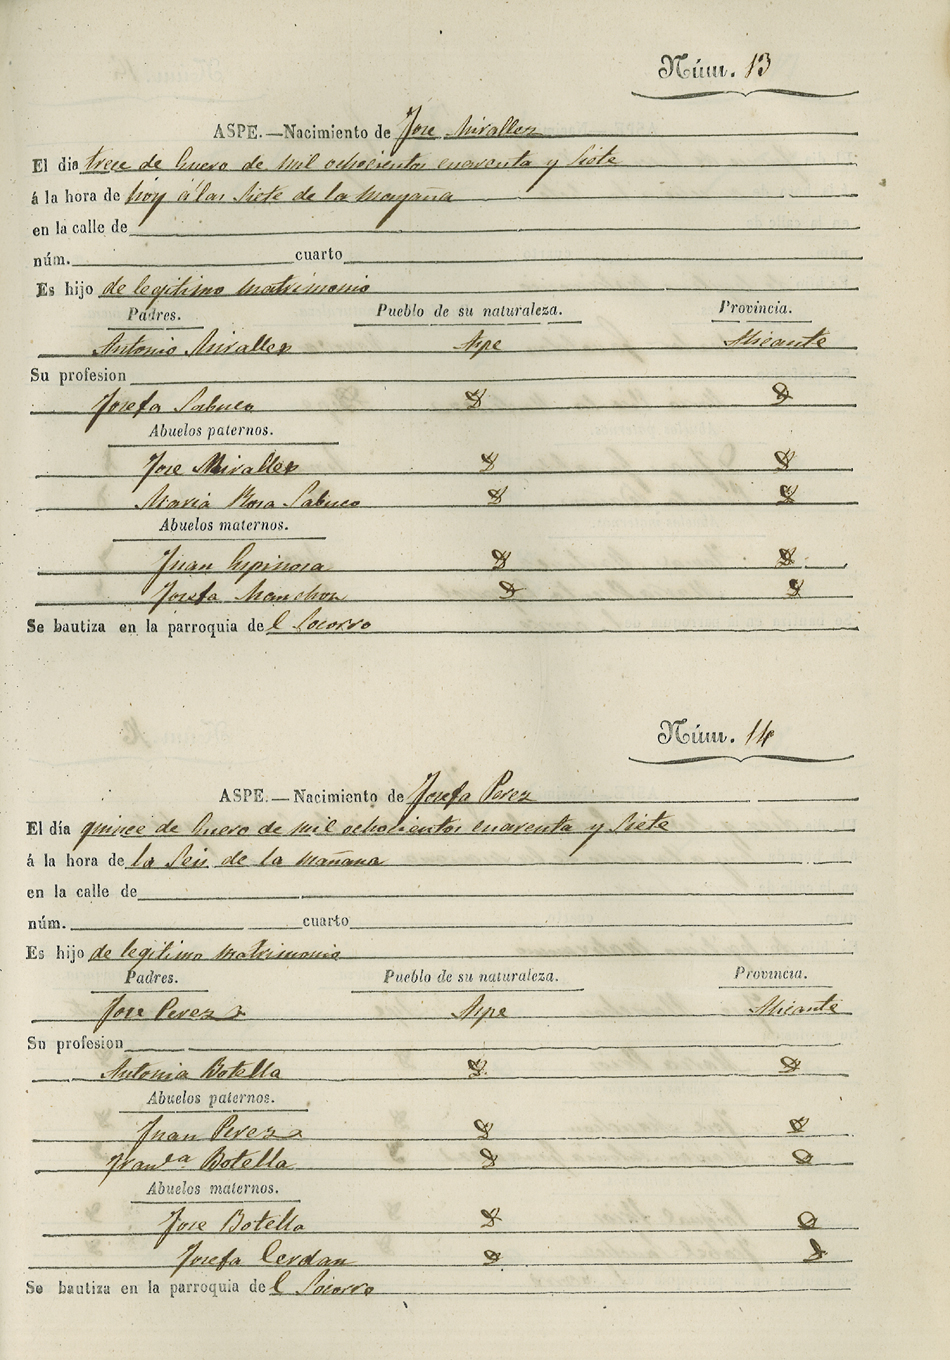 Núm. 13
ASPE.—Nacimiento de Jose Miralles
El dia trece de Enero de mil ochocientos cuarenta y Siete
á la hora de hoy á las Siete de la mañana
en la calle de
núm. cuarto
Es hijo de legitimo matrimonio
Padres. Pueblo de su naturaleza. Provincia.
Antonio Miralles Aspe Alicante
Su profesion
Josefa Sabuco
Abuelos paternos.
Jose Miralles
Maria Rosa Sabuco
Abuelos maternos.
Juan Espinosa
Josefa Manchon
Se bautiza en la parroquia de l Socorro
Núm. 14
ASPE.—Nacimiento de Josefa Perez
El día quince de Enero de mil ochocientos cuarenta y Siete
á la hora de la Seis de la mañana
en la calle de
núm. cuarto
Es hijo de legitimo matrimonio
Padres. Pueblo de su naturaleza. Provincia.
Jose Perez Aspe Alicante
Su profesion
Antonia Botella
Abuelos paternos.
Juan Perez
Franca Botella
Abuelos maternos.
Jose Botella
Josefa Cerdan
Se bautiza en la parroquia de l Socorro